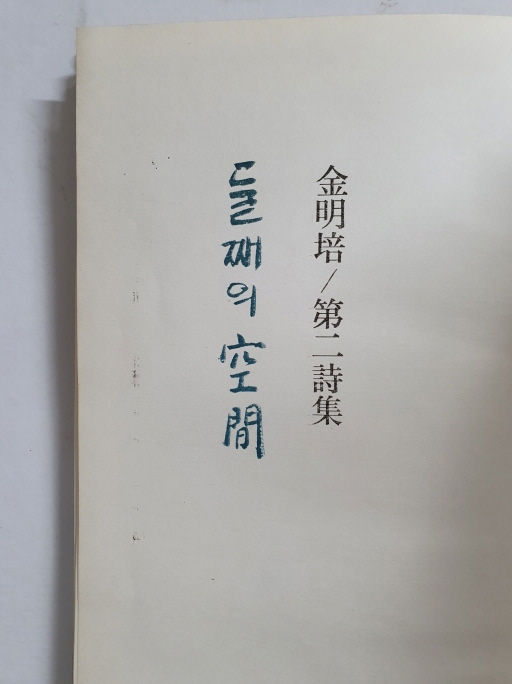 金明培/第二詩集
둘째의 空間